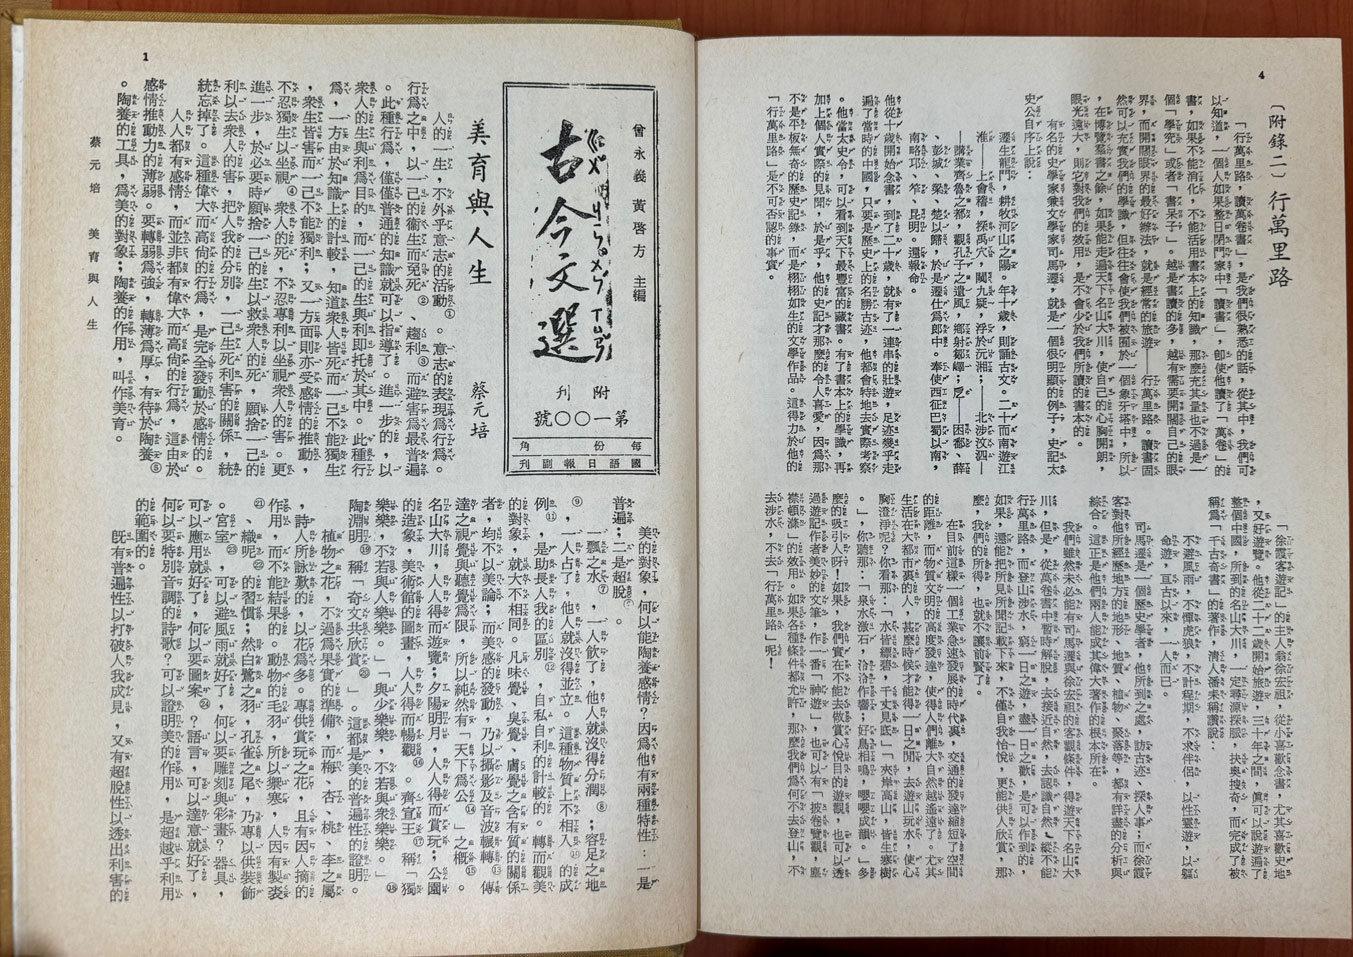 4
〔附錄二〕行萬里路
「行萬里路,讀萬卷書」,是我們很熟悉的話,從其中,我們可
以知道,一個人如果整日閉門家中「讀書」,卽使他讀了「萬卷」的
書,如果不能消化,不能活用書本上的知識,那麼充其量也不過是一
個「學究」或者「書呆子」。越是書讀的多,越有需要開闊自己的眼
界,而開闊眼界的最好辦法,就是經常的旅遊——行萬里路。讀書固
然可以充實我們的學識,但往往會使我們被囿於一個象牙塔中,所以
,在博覽羣書之餘,如果能走遍天下名山大川,使自己的心胸開朗,
眼光遠大,則它對我們的效用,是不會少於我們所讀的書本的。
有名的史學家兼文學家司馬遷,就是一個很明顯的例子,史記太
史公自序上說:
遷生龍門,耕牧河山之陽。年十歲,則誦古文。二十而南遊江
淮——上會稽,探禹穴,闚九疑,浮於沅湘;——北涉汶泗—
—講業齊魯之都,觀孔子之遺風,鄉射鄒嶧;戹——困鄱、薛
、彭城,梁、楚以歸,於是遷仕爲郎中。奉使西征巴蜀以南,
南略邛、笮、昆明。還報命。
他從十歲開始念書,到了二十歲,就有了一連串的壯遊,足迹幾乎走
遍了當時的中國,只要是歷史上的名勝古迹,他都會特地去實際考察
。他當太史令,可以看到天下最豐富的藏書。有了書本上的學識,再
加上個人實際的見聞,於是乎,他的史記才那麼的令人喜愛,因爲那
不是不板無奇的歷史記錄,而是栩栩如生的文學作品。這得力於他的
「行萬里路」是不可否認的事實。
「徐霞客遊記」的主人翁徐宏祖,從小喜歡念書,尤其喜歡史地
,又好遊覽。他從二十二歲開始旅遊,三十年之間,眞可以說遊遍了
整個中國,所到的名山大川,一定尋源探脈,抉奧搜奇,而完成了被
稱爲「千古奇書」的著作,淸人潘耒稱讚說:
不避風雨,不憚虎狼,不計程期,不求伴侶,以性靈遊,以軀
命遊,亘古以來,一人而已。
司馬遷是一個歷史學者,他所到之處,訪古迹,探人事;而徐霞
客對他所經歷地方的地形、地質、植物、聚落等,都有詳盡的分析與
綜合。這正是他們兩人能成其偉大著作的根本所在。
我們雖然未必能有司馬遷與徐宏祖的客觀條件,得遊天下名山大
川,但是,從萬卷書中暫時解脫,去接近自然,去認識自然,縱不能
行萬里路,而登山涉水,窮一日之遊,盡一日之歡,是可以作到的,
如果,還能把所見所聞記載下來,不僅自我怡悅,更能供人欣賞,那
麼,我們的所得,也就不讓前賢了。
在目前這樣一個工業急速發展的時代裏,交通的發達縮短了空間
的距離,而物質文明的高度發達,使得人們離大自然越遙遠了。尤其
生活在大都市裏的人,甚麼時候才能得一日之閒,去遊山玩水,使心
胸澄淨呢?你看那:「水皆縹碧,千丈見底」「夾岸高山,皆生寒樹
。」你聽那:「泉水激石,泠泠作響;好鳥相鳴,嚶嚶成韻。」多
麼的吸引人呀!如果,我們實在不能去做賞心悅目的遊觀,也可以透
過遊記作者美妙的文筆,作一番「神遊」,也可以有「披卷覽觀,塵
襟頓滌」的效用。如果各種條件都允許,那麼我們爲何不去登山,不
去涉水,不去「行萬里路」呢!
1
曾永義 黃啓方 主編
古今文選
附刊
第一〇〇號
每份 角
國語日報副刊
美育與人生
蔡元培
人的一生,不外乎意志的活動①。意志的表現爲行爲。
行爲之中,以一己的衞生而免死②、趨利③而避害爲最普遍
。此種行爲,僅僅普通的知識就可以指導了。進一步的,以
衆人的生與利爲目的,而一己的生與利即托於其中。此種行
爲,一方由於知識上的計較,知道衆人皆死而一己不能獨生
,衆人皆害而一己不能獨利;又一方面則亦受感情的推動,
不忍獨生以坐視④衆人的死,不忍專利以坐視衆人的害。更
進一步,於必要時願捨一己的生以救衆人的死,願捨一己的
利以去衆人的害,把人我的分別,一己生死利害的關係,統
統忘掉了。這種偉大而高尙的行爲,是完全發動於感情的。
人人都有感情,而並非都有偉大而高尙的行爲,這由於
感情推動力的薄弱。要轉弱爲強,轉薄爲厚,有待於陶養⑤
。陶養的工具,爲美的對象;陶養的作用,叫作美育。
美的對象,何以能陶養感情?因爲他有兩種特性:一是
普遍;二是超脫。
一瓢之水⑦,一人飲了,他人就沒得分潤⑧;容足之地
⑨,一人占了,他人就沒得並立。這種物質上不相入⑩的成
例⑪,是助長人我的區別⑫、自私自利的計較的。轉而觀美
的對象,就大不相同。凡味覺、臭覺、膚覺之含有質的關係
者,均不以美論;而美感的發動,乃以攝影及音波輾轉⑬傳
達之視覺與聽覺爲限,所以純然有「天下爲公⑭」之槪⑮。
名山大川,人人得而遊覽;夕陽明月,人人得而賞玩;公園
的造象,美術館的圖畫,人人得而暢觀⑯。齊宣王⑰稱「獨
樂樂,不若與人樂樂。」「與少樂樂,不若與衆樂樂。」⑱
陶淵明⑲稱「奇文共欣賞⑳」。這都是美的普遍性的證明。
植物之花,不過爲果實的準備,而梅、杏、桃、李之屬
,詩人所詠歎的,以花爲多。專供賞玩之花,且有因人擇的
作用,而不能結果的。動物的毛羽,所以禦寒,人因有製裘
㉑、織呢㉒的習慣;然白鷺之羽,孔雀之尾,乃專以供裝飾
。宮室㉓,可以避風雨就好了,何以要雕刻與彩畫?器具,
可以應用就好了,何以要圖案㉔?語言,可以達意就好了,
何以要特別音調的詩歌?可以證明美的作用,是超乎利用
的範圍的。
旣有普遍性以打破人我成見,又有超脫性以透出利害的
蔡元培 美育與人生